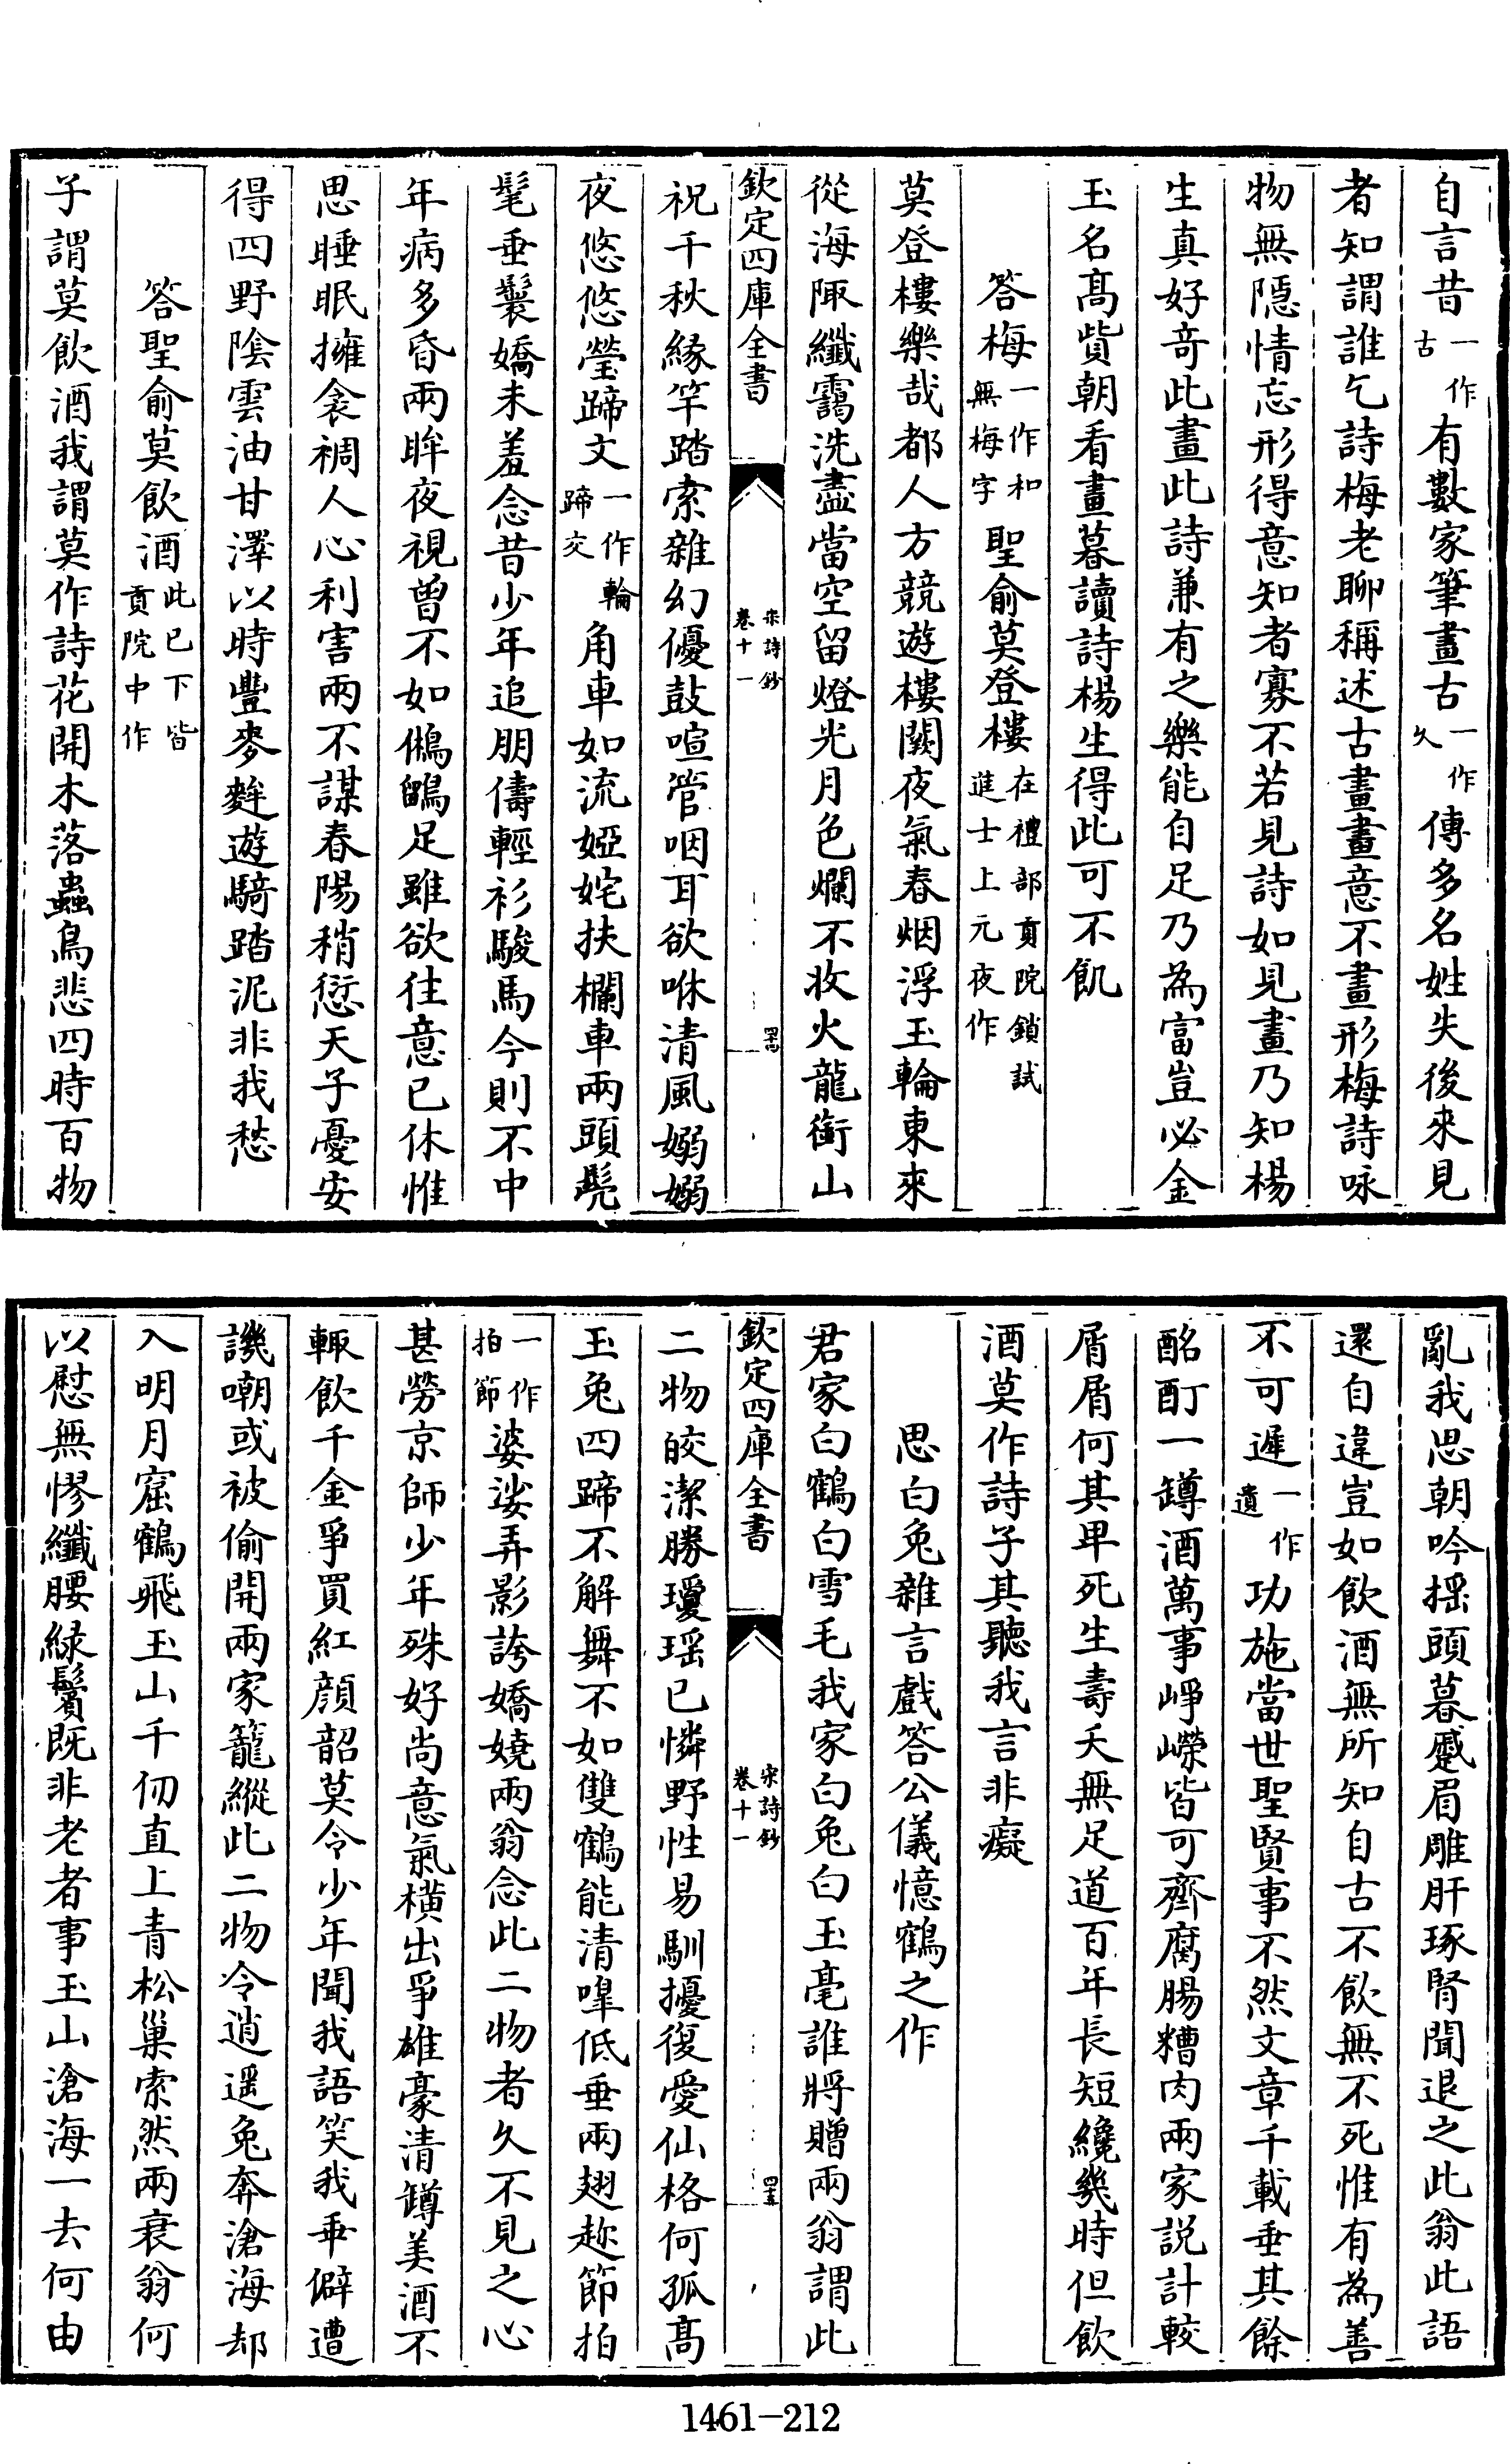 自言昔一作古有數家筆畫古一作久傳多名姓失後來見
者知謂誰乞詩梅老聊稱述古畫畫意不畫形梅詩咏
物無隱情忘形得意知者寡不若見詩如見畫乃知楊
生真好奇此畫此詩兼有之樂能自足乃為富豈必金
玉名髙貲朝看畫暮讀詩楊生得此可不飢
答梅一作和無梅字聖俞莫登樓在禮部貢院鎖試進士上元夜作
莫登樓樂哉都人方競遊樓闕夜氣春烟浮玉輪東來
從海陬纖靄洗盡當空留燈光月色爛不收火龍銜山
欽定四庫全書
宋詩鈔
卷十一
四十四
祝千秋緣竿踏索雜幻優鼓喧管咽耳欲咻清風嫋嫋
夜悠悠瑩蹄文一作輪蹄交角車如流婭姹扶欄車兩頭髧
髦垂鬟嬌未羞念昔少年追朋儔輕衫駿馬今則不中
年病多昏兩眸夜視曾不如鵂鶹足雖欲往意已休惟
思睡眠擁衾裯人心利害兩不謀春陽稍愆天子憂安
得四野陰雲油甘澤以時豐麥麰遊騎踏泥非我愁
答聖俞莫飲酒此已下皆貢院中作
子謂莫飲酒我謂莫作詩花開木落蟲鳥悲四時百物
亂我思朝吟揺頭暮蹙眉雕肝琢腎聞退之此翁此語
還自違豈如飲酒無所知自古不飲無不死惟有為善
不可遲一作遺功施當世聖賢事不然文章千載垂其餘
酩酊一罇酒萬事崢嶸皆可齊腐腸糟肉兩家説計較
屑屑何其卑死生壽夭無足道百年長短纔幾時但飲
酒莫作詩子其聽我言非癡
思白兔雜言戲答公儀憶鶴之作
君家白鶴白雪毛我家白兔白玉毫誰將贈兩翁謂此
欽定四庫全書
宋詩鈔
卷十一
四十五
二物皎潔勝瓊瑶已憐野性易馴擾復愛仙格何孤髙
玉兔四蹄不解舞不如雙鶴能清嘷低垂兩翅趂節拍
一作拍節婆娑弄影誇嬌嬈兩翁念此二物者久不見之心
甚勞京師少年殊好尚意氣橫出爭雄豪清罇美酒不
輒飲千金爭買紅顔韶莫令少年聞我語笑我乖僻遭
譏嘲或被偷開兩家籠縱此二物令逍遥兔奔滄海却
入明月窟鶴飛玉山千仞直上青松巢索然兩衰翁何
以慰無憀纖腰緑鬢既非老者事玉山滄海一去何由
1461—212